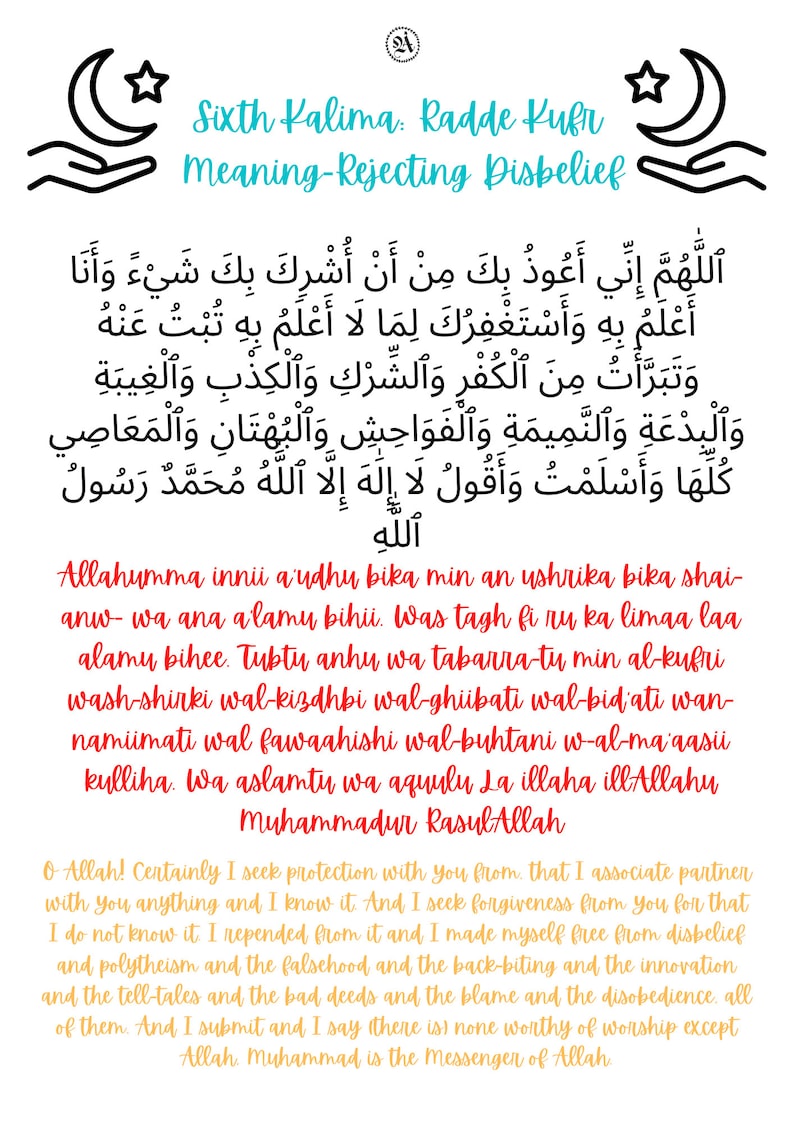 Sixth Kalima: Radde Kufr
Meaning-Rejecting Disbelief
ٱللَّٰهُمَّ إِنِّي أَعُوذُ بِكَ مِنْ أَنْ أُشْرِكَ بِكَ شَيْءً وَأَنَا
أَعْلَمُ بِهِ وَأَسْتَغْفِرُكَ لِمَا لَا أَعْلَمُ بِهِ تُبْتُ عَنْهُ
وَتَبَرَّأَتُ مِنَ ٱلْكُفْرِ وَٱلشِّرْكِ وَٱلْكِذْبِ وَٱلْغِيبَةِ
وَٱلْبِدْعَةِ وَٱلنَّمِيمَةِ وَٱلْفَوَاحِشِ وَٱلْبُهْتَانِ وَٱلْمَعَاصِي
كُلِّهَا وَأَسْلَمْتُ وَأَقُولُ لَا إِلَٰهَ إِلَّا ٱللَّهُ مُحَمَّدٌ رَسُولُ
ٱللَّٰهِ
Allahumma innii a'udhu bika min an ushrika bika shai-
anw- wa ana a'lamu bihii. Was tagh fi ru ka limaa laa
alamu bihee. Tubtu anhu wa tabarra-tu min al-kufri
wash-shirki wal-kizdhbi wal-ghiibati wal-bid'ati wan-
namiimati wal fawaahishi wal-buhtani w-al-ma'aasii
kulliha. Wa aslamtu wa aquulu La illaha illAllahu
Muhammadur RasulAllah
O Allah! Certainly I seek protection with You from, that I associate partner
with You anything and I know it. And I seek forgiveness from You for that
I do not know it. I repended from it and I made myself free from disbelief
and polytheism and the falsehood and the back-biting and the innovation
and the tell-tales and the bad deeds and the blame and the disobedience, all
of them. And I submit and I say (there is) none worthy of worship except
Allah, Muhammad is the Messenger of Allah.